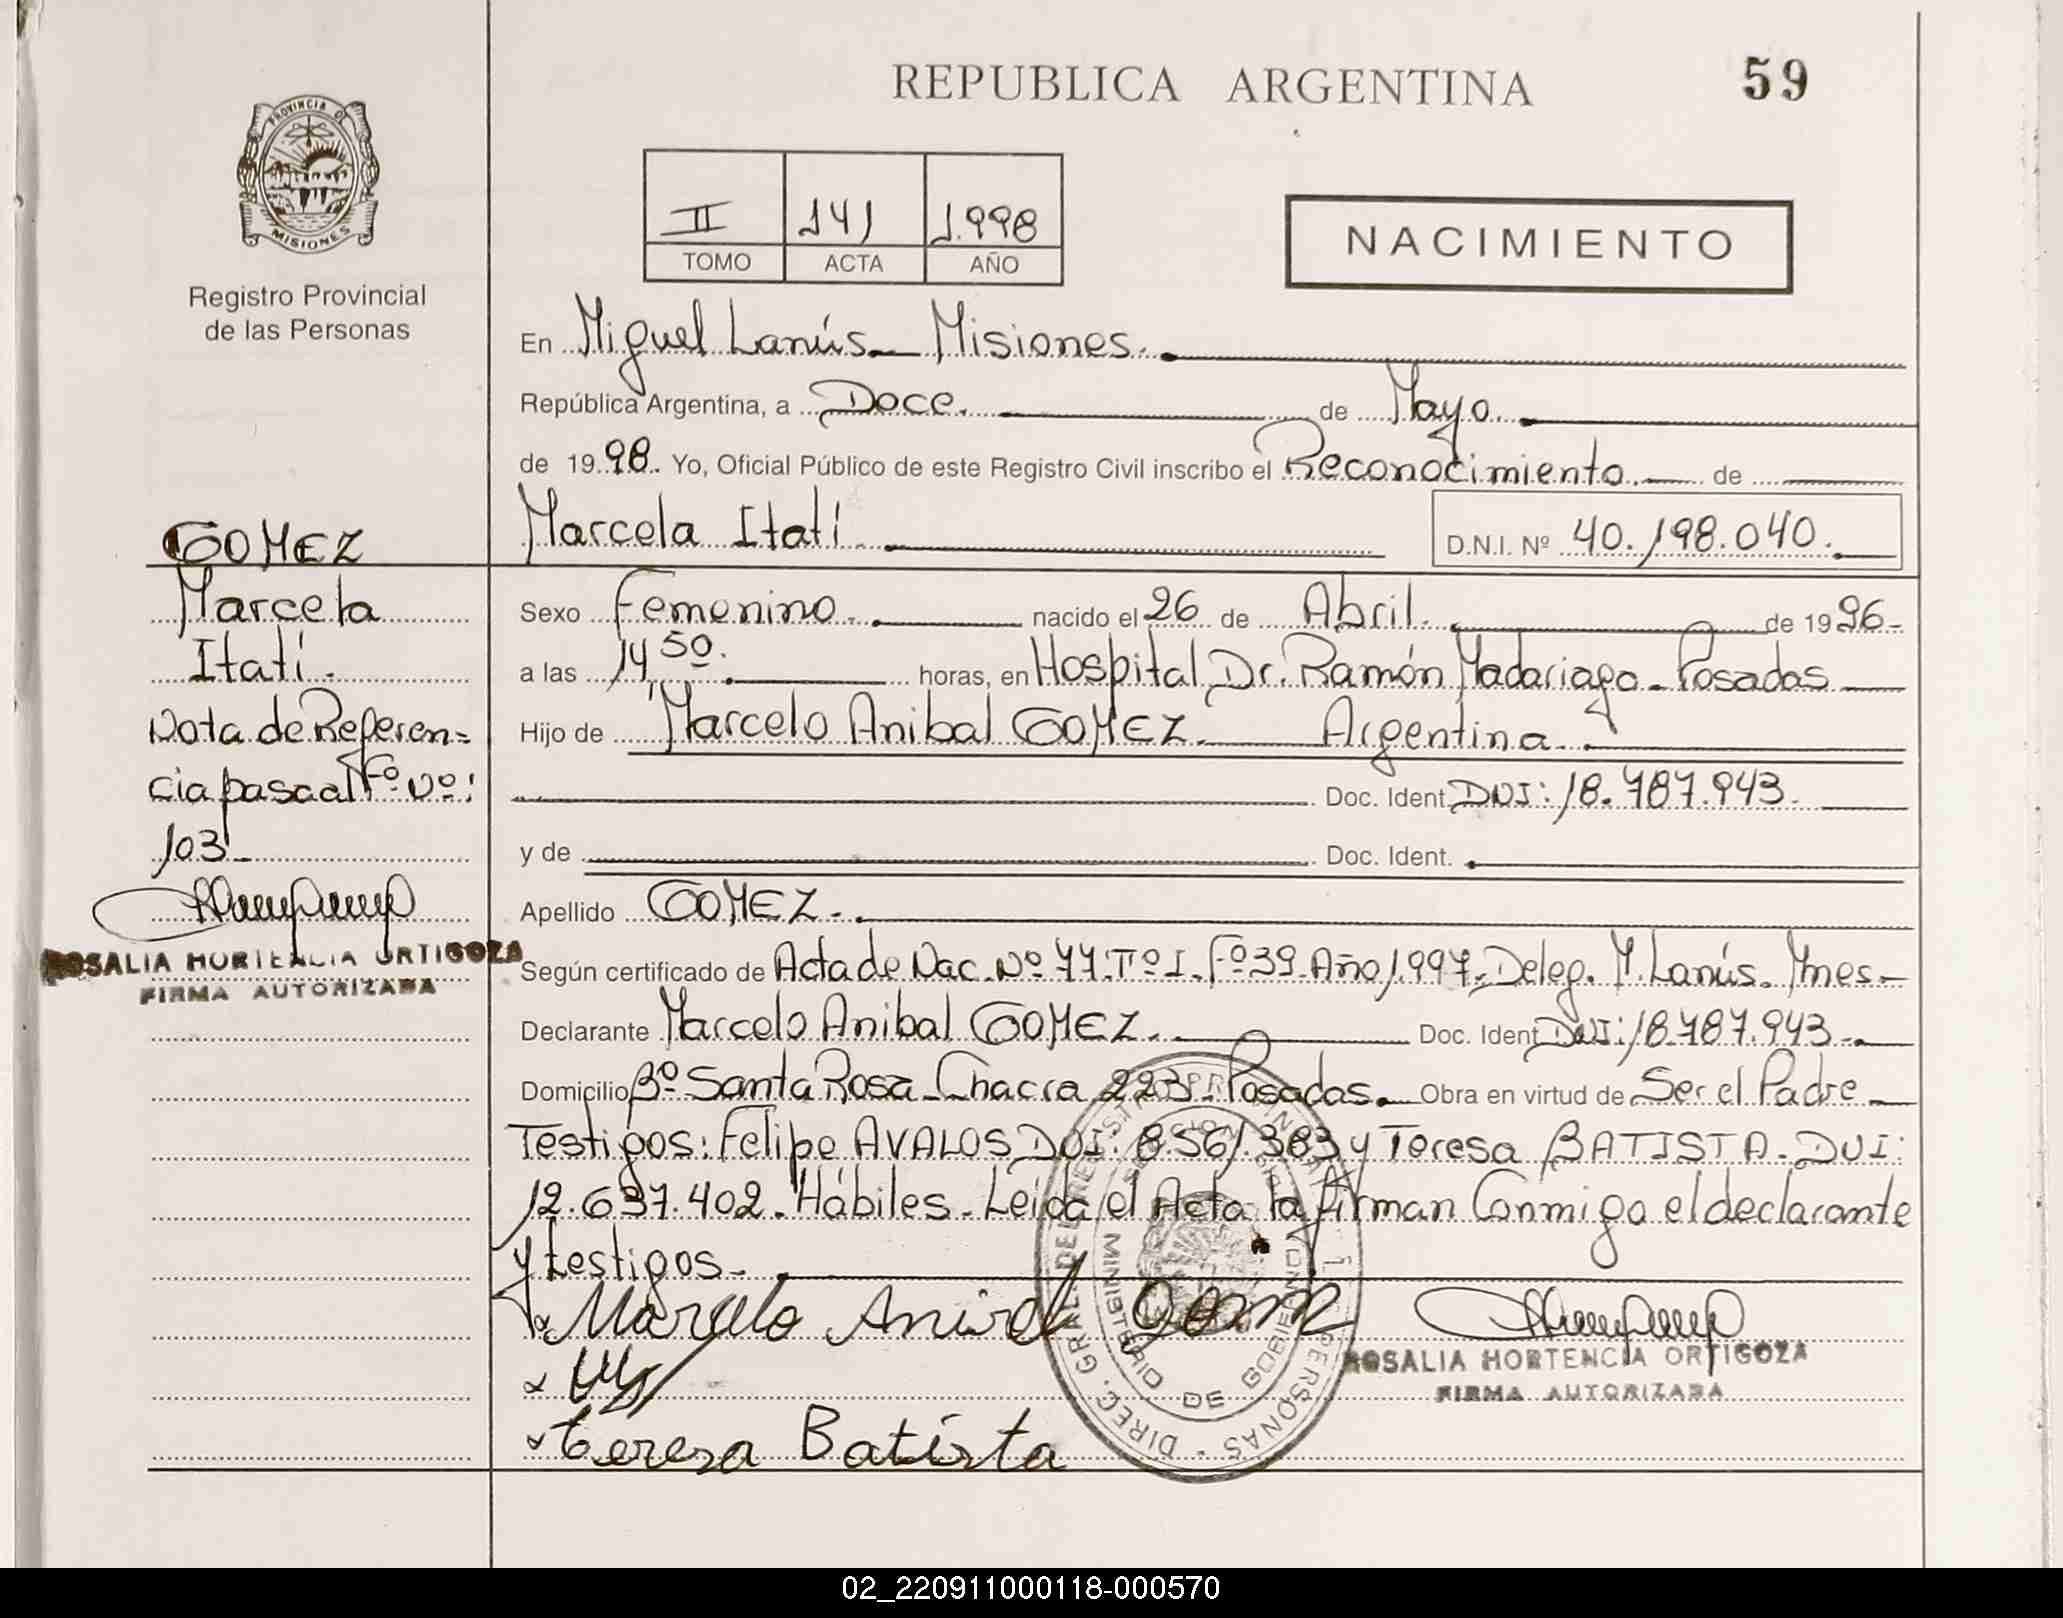 REPUBLICA ARGENTINA
59
PROVINCIA DE
MISIONES
Registro Provincial
de las Personas
II 141 1.998
TOMO ACTA AÑO
NACIMIENTO
En Miguel Lanús - Misiones.
República Argentina, a Doce. de Mayo.
de 1998. Yo, Oficial Público de este Registro Civil inscribo el Reconocimiento de
Marcela Itatí. D.N.I. Nº 40.198.040.
GOMEZ
Marcela
Itatí.
Nota de Referen=
cia pasa al Fº Nº:
103-
ROSALIA HORTENCIA ORTIGOZA
FIRMA AUTORIZADA
Sexo Femenino. nacido el 26 de Abril. de 1996-
a las 14 50. horas, en Hospital Dr. Ramón Madariaga - Posadas
Hijo de Marcelo Anibal GOMEZ. Argentina.
Doc. Ident. DNI: 18.787.943.
y de Doc. Ident.
Apellido GOMEZ.
Según certificado de Acta de Nac. Nº 77. Tº I. Fº 39. Año 1.997. Deleg. M. Lanús. Mnes-
Declarante Marcelo Anibal GOMEZ. Doc. Ident. DNI: 18.787.943-
Domicilio Bº Santa Rosa - Chacra 223 - Posadas. Obra en virtud de Ser el Padre
Testigos: Felipe AVALOS DNI: 8.561.383 y Teresa BATISTA. DNI:
12.637.402. Hábiles. Leída el Acta la firman Conmigo el declarante
y testigos.
Marcelo Anibal Gomez
Teresa Batista
ROSALIA HORTENCIA ORTIGOZA
FIRMA AUTORIZADA
DIREC. GRAL. DEL REGISTRO PROVINCIAL PERSONAS
MINISTERIO DE GOBIERNO
02_220911000118-000570